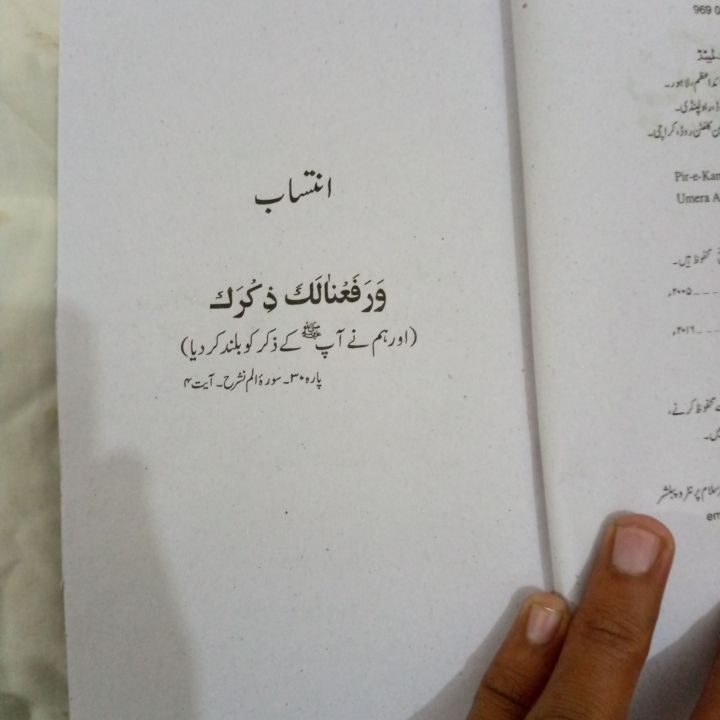 انتساب
وَرَفَعْنَالَكَ ذِكْرَكَ
(اور ہم نے آپ ﷺ کے ذکر کو بلند کر دیا)
پارہ ۳۰۔ سورۂ الم نشرح۔ آیت ۴
969 0
لاہور۔
راولپنڈی۔
روڈ، کراچی۔
Pir-e-Kam
Umera A
محفوظ ہیں۔
۲۰۰۵ء
۲۰۱۶ء
محفوظ کرنے،
پرنٹر و پبلشر
em